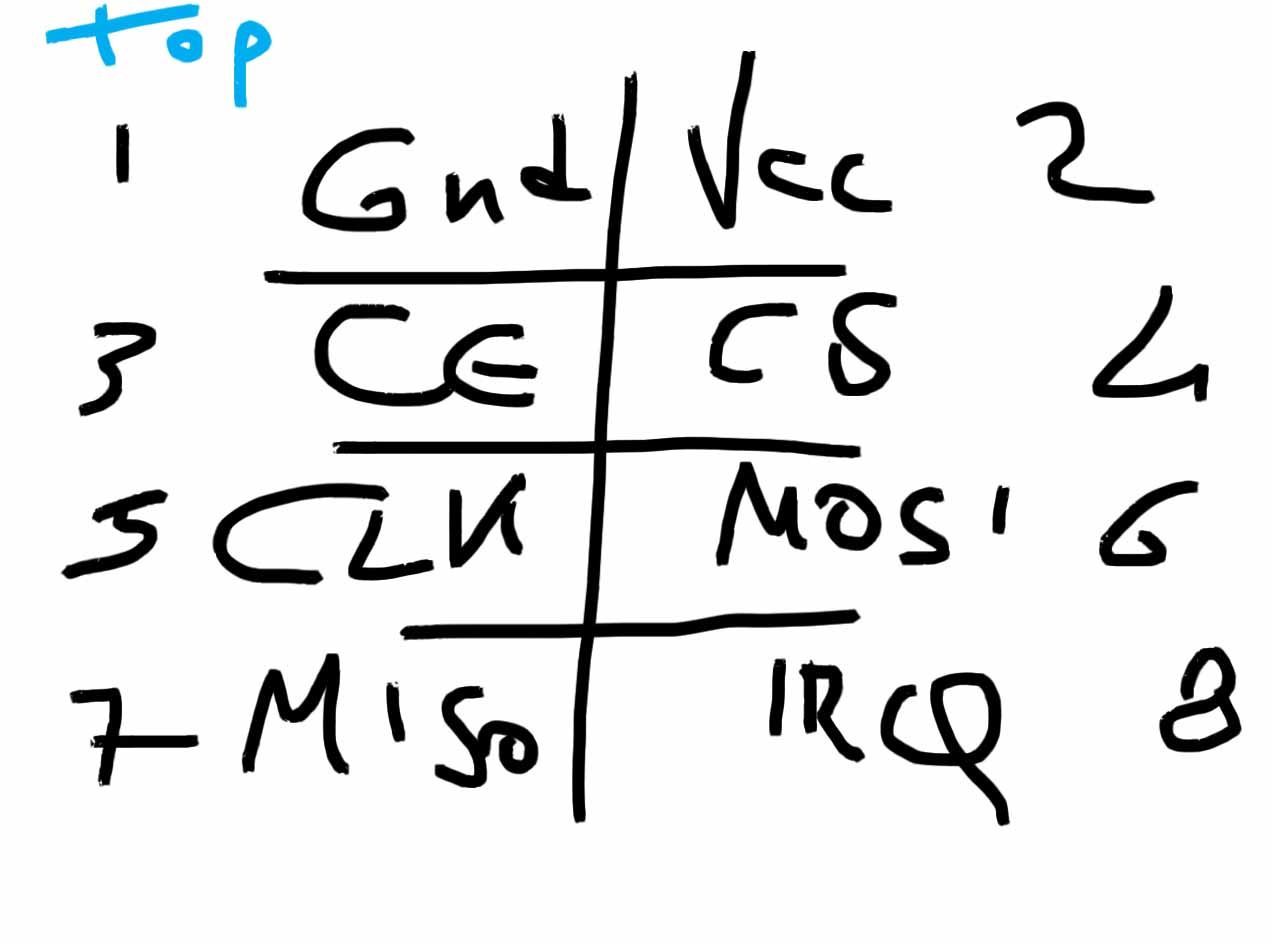 Top
1 Gnd Vcc 2
3 CE CS 4
5 CLK MOSI 6
7 MISO IRQ 8